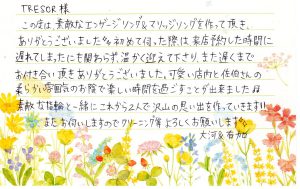 TRESOR 様
この度は、素敵なエンゲージリング&マリッジリングを作って頂き、
ありがとうございました!!初めて伺った際は来店予約した時間に
遅れてしまったにも関わらず温かく迎えて下さり、また遅くまで
お付き合い頂きありがとうございました。可愛い店内と佐伯さんの
柔らかい雰囲気のお陰で楽しい時間を過ごすことが出来ました
素敵な指輪と一緒にこれから2人で沢山の思い出を作っていきます!!
またお伺いしますのでクリーニング等よろしくお願いします
大河&